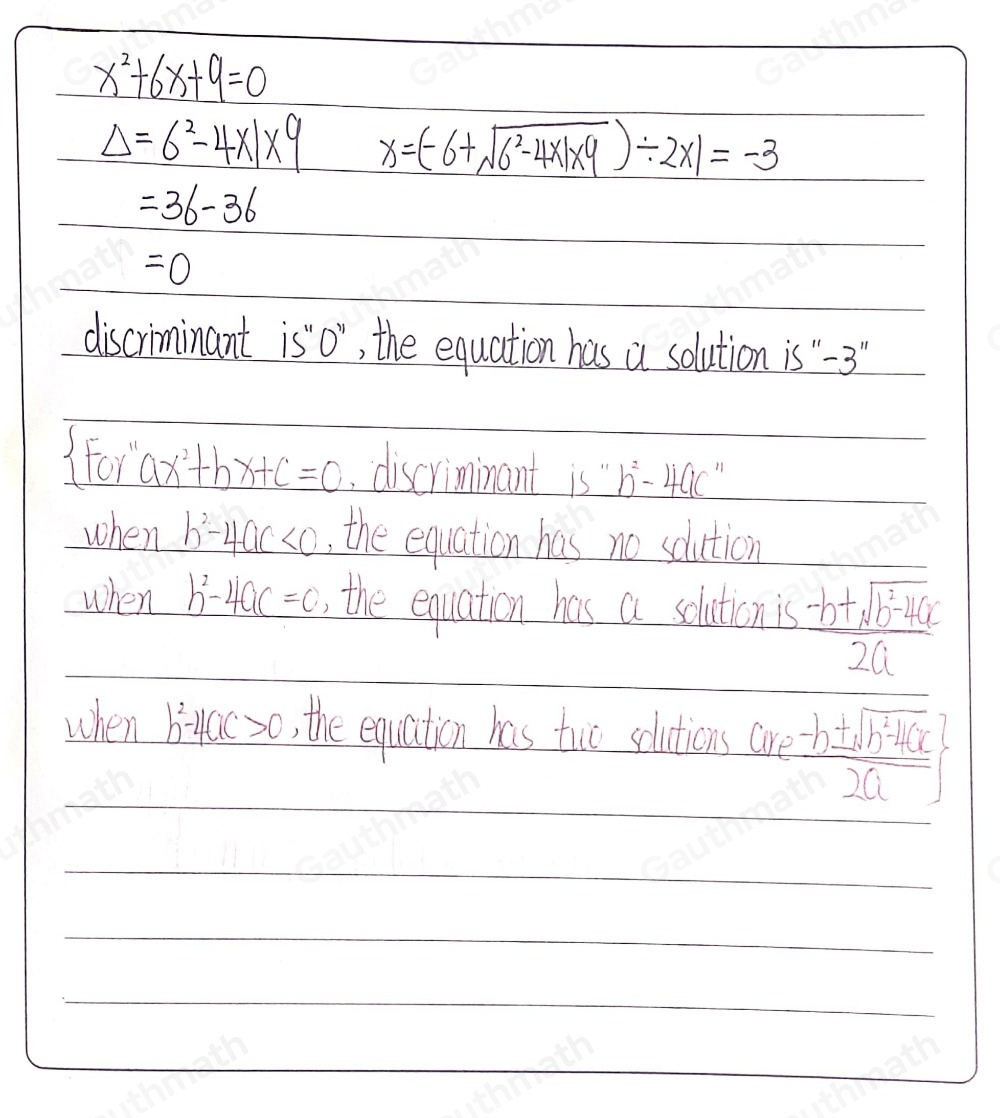 x²+6x+9=0
Δ=6²-4×1×9 x=(-6+√6²-4×1×9)÷2×1=-3
=36-36
=0
discriminant is "0", the equation has a solution is "-3"
{For "ax²+bx+c=0, discriminant is "b²-4ac"
when b²-4ac<0, the equation has no solution
when b²-4ac=0, the equation has a solution is -b+√b²-4ac
2a
when b²-4ac>0, the equation has two solutions are -b±√b²-4ac}
2a
Gauthmath